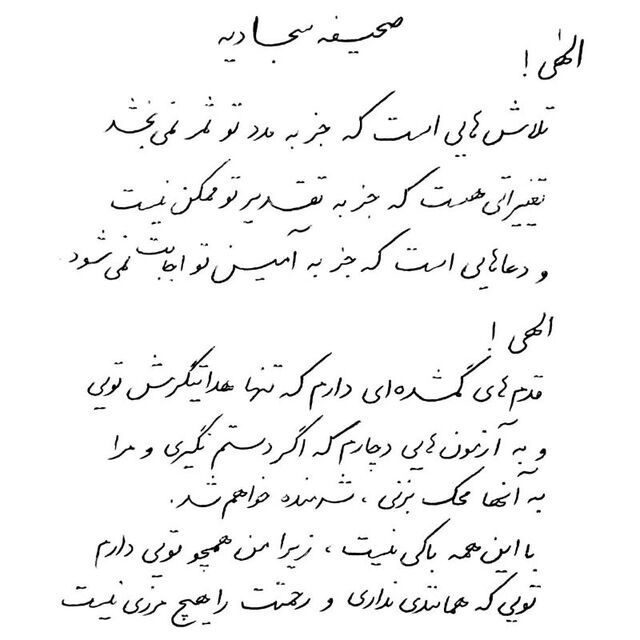 صحیفه سجادیه
الهی !
تلاش هایی است که جز به مدد تو ثمر نمی بخشد
تغییراتی هست که جز به تقدیر تو ممکن نیست
و دعاهایی است که جز به آمین تو اجابت نمی شود.
الهی !
قدم های گمشده ای دارم که تنها هدایتگرش تویی
و به آزمون هایی دچارم که اگر دستم نگیری و مرا
به آنها محک بزنی ، شرمنده خواهم شد.
با این همه باکی نیست ، زیرا من همچو تویی دارم
تویی که همانندی نداری و رحمتت را هیچ مرزی نیست